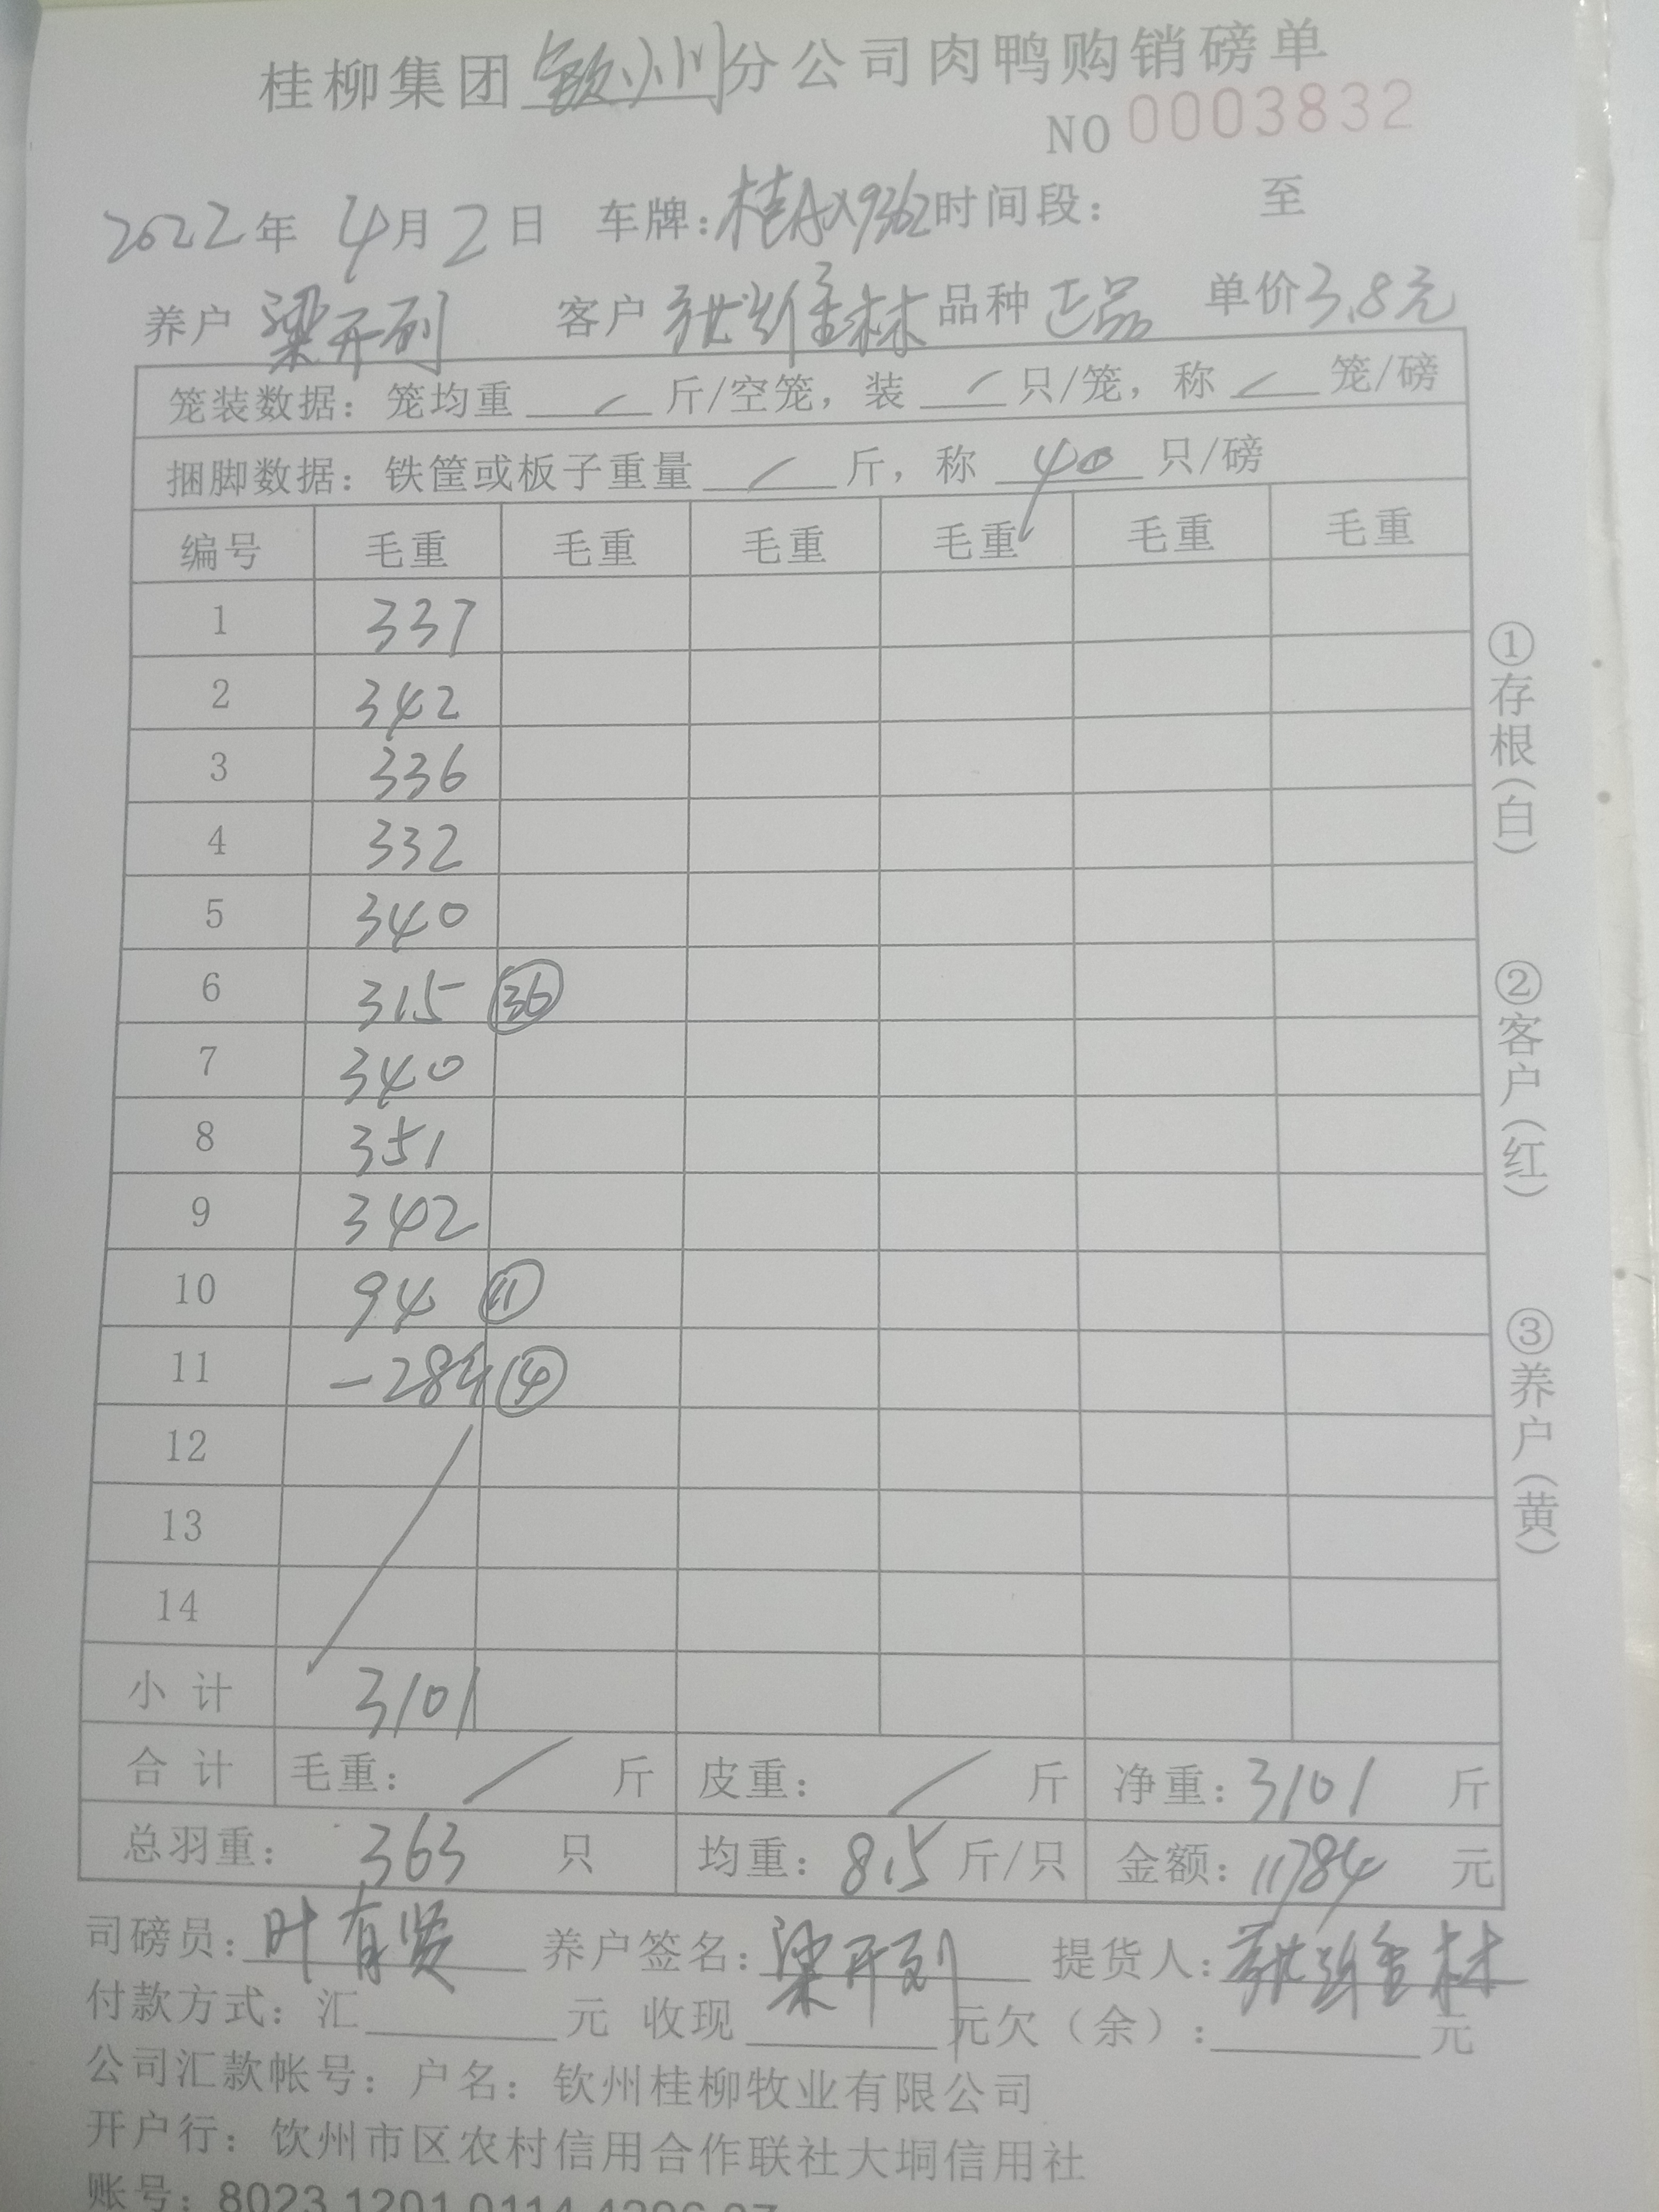 桂柳集团钦州分公司肉鸭购销磅单
NO 0003832
2022年 4月2日 车牌:桂AX9362时间段: 至
养户 梁开列 客户 品种 正品 单价3.8元
笼装数据: 笼均重 / 斤/空笼, 装 / 只/笼, 称 / 笼/磅
捆脚数据: 铁筐或板子重量 / 斤, 称 40 只/磅
编号 毛重 毛重 毛重 毛重 毛重 毛重
1 337
2 342
3 336
4 332
5 340
6 315 ㊱
7 340
8 351
9 342
10 94 ⑪
11 -28斤 ④
12
13
14
小计 3101
合计 毛重: / 斤 皮重: / 斤 净重:3101 斤
总羽重: 363 只 均重:8.5斤/只 金额:11784 元
司磅员:叶有贤 养户签名:梁开列 提货人:
付款方式: 汇 元 收现 元欠(余): 元
公司汇款帐号: 户名: 钦州桂柳牧业有限公司
开户行: 钦州市区农村信用合作联社大垌信用社
账号: 8023 1201 0114
①存根(白)
②客户(红)
③养户(黄)